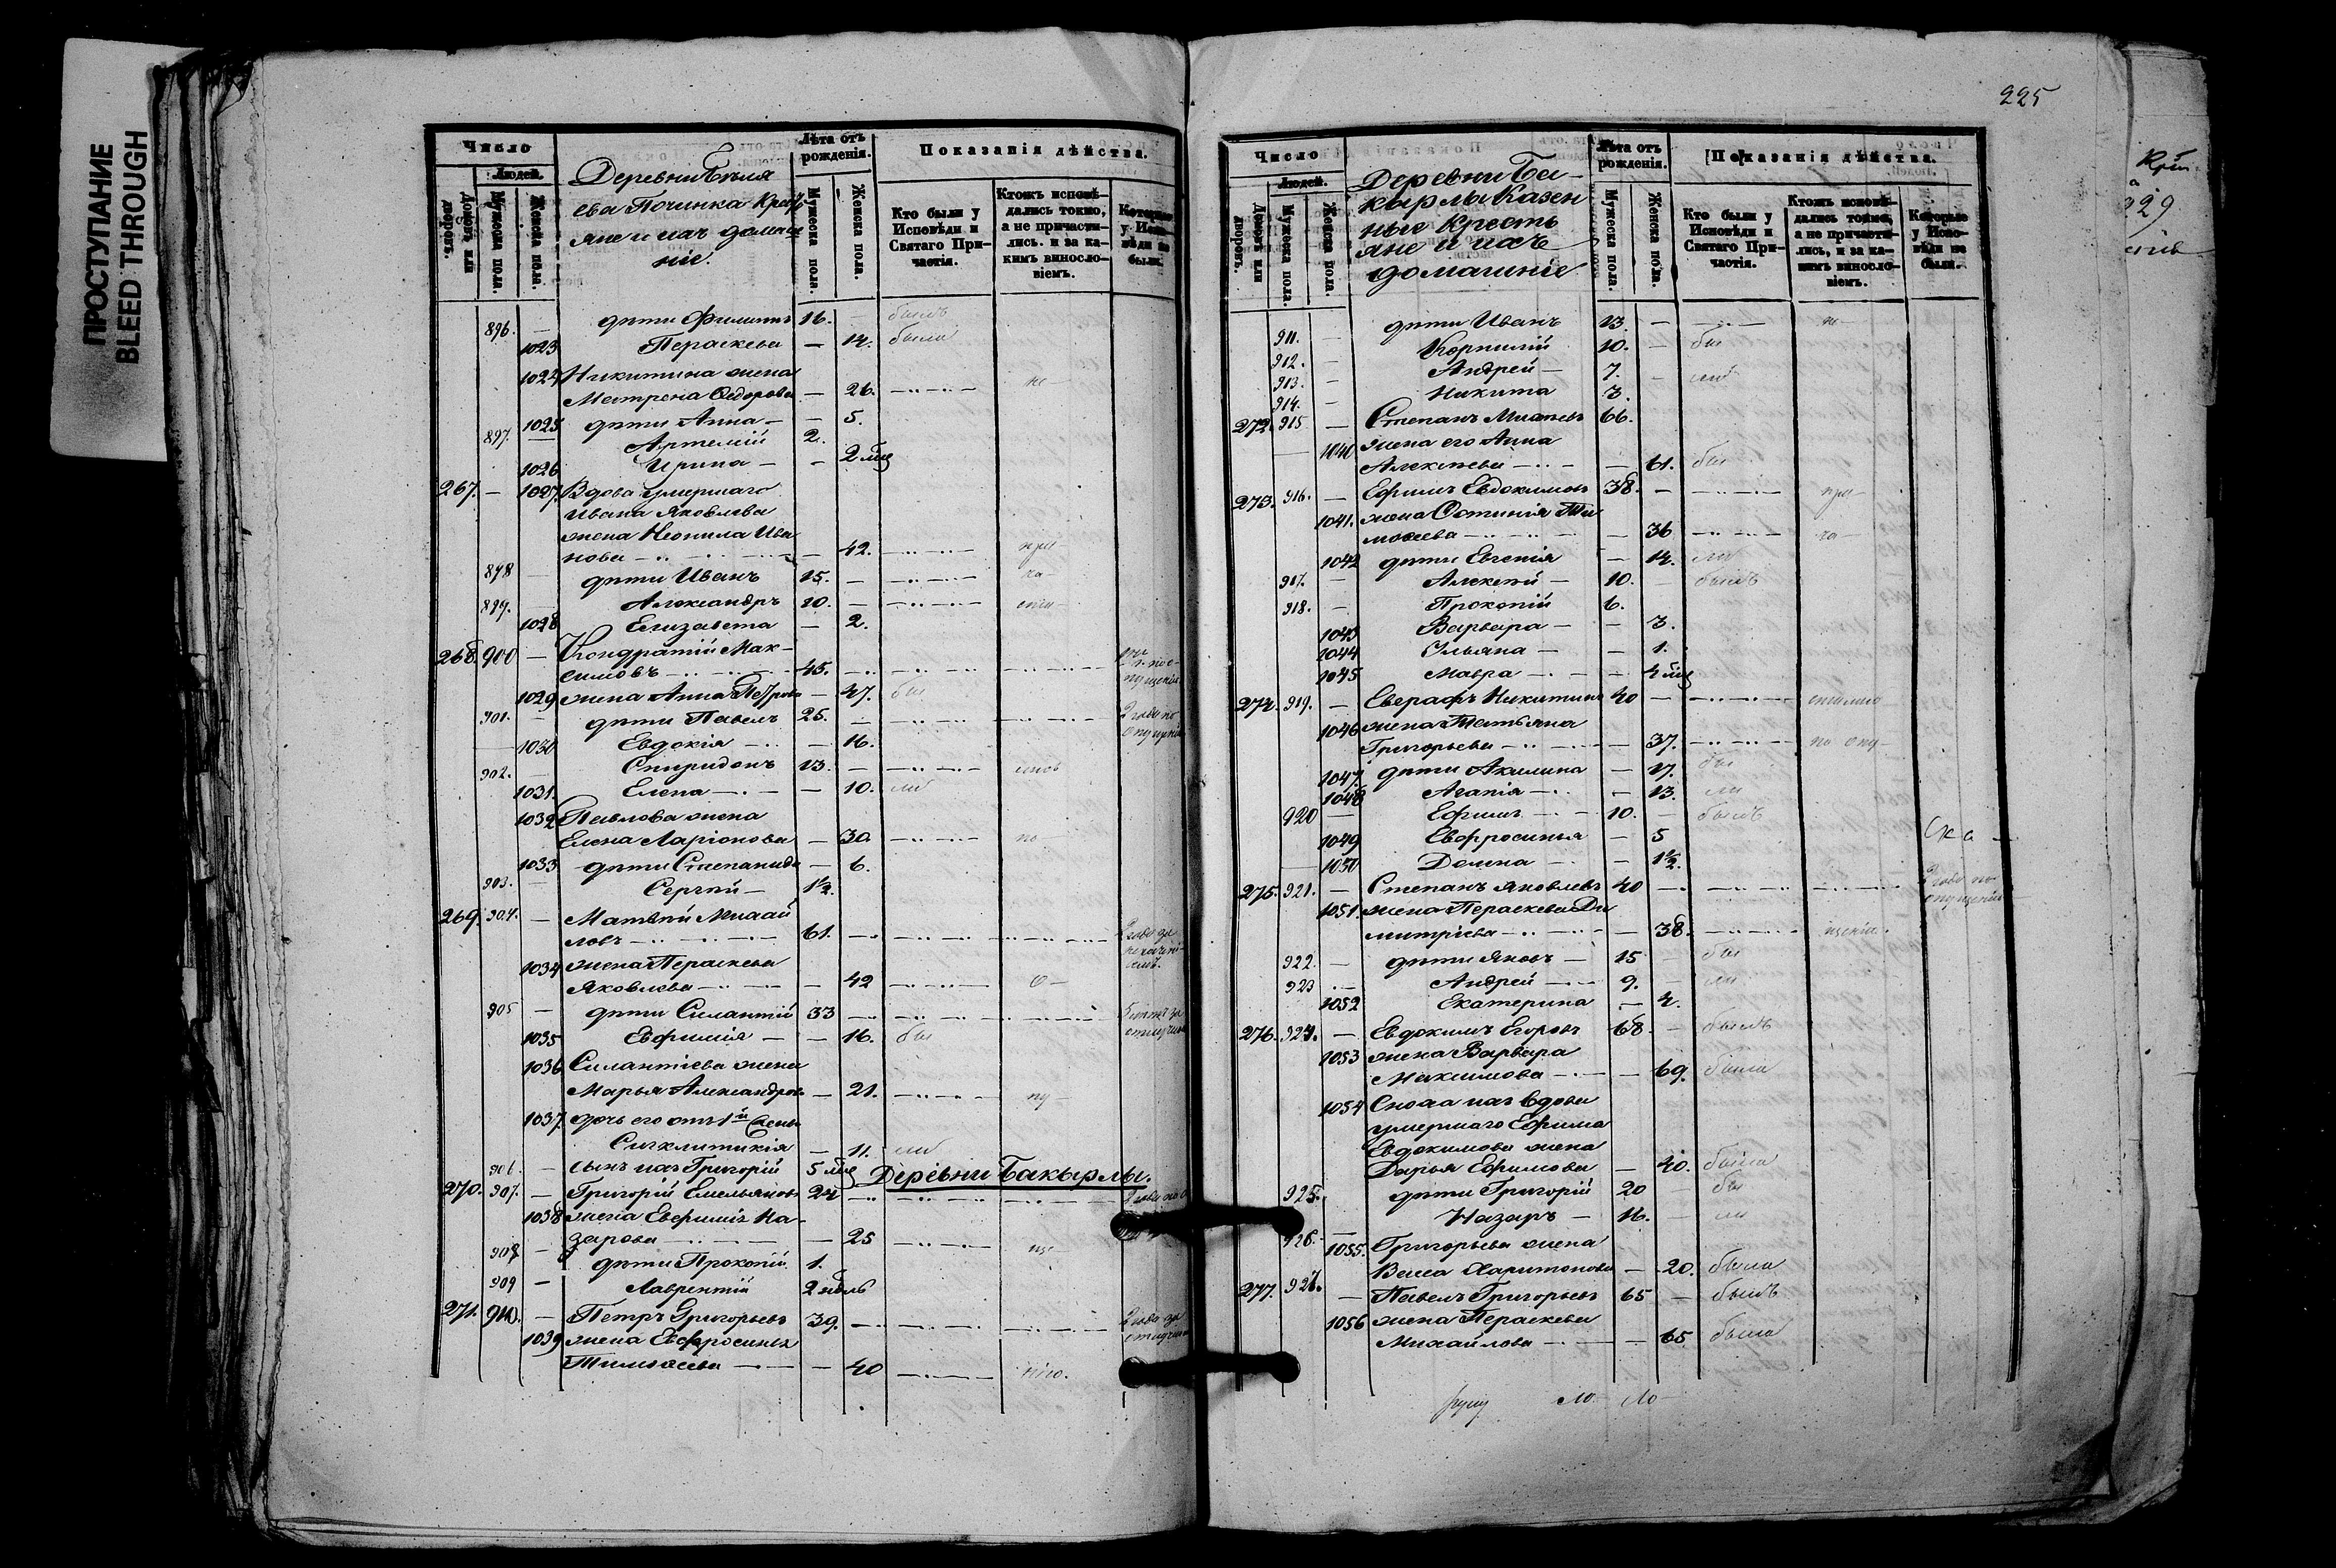 ПРОСТУПАНИЕ
BLEED THROUGH
Число
Людей.
Домовъ или дворовъ.
Мужеска пола.
Женска пола.
Деревни
ева Починка Кресть
яне и ихъ домаш
ніе.
Лѣта отъ рожденія.
Мужеска пола.
Женска пола.
Показанія дѣйства.
Кто были у Исповѣди и Святаго При-
частія.
Ктожъ исповѣ-
дались токмо,
а не причасти-
лись. и за ка-
кимъ винослo-
віемъ.
Которые у Испо-
вѣди не были.
896. — дѣти Филиппъ 16. — былъ
1023 Параскева — 14. была
1024 Никитина жена
Матрена Ѳедорова — 26. — не —
1025 дѣти Анна — — 5.
897. — Артемій 2.
1026 Ирина — — 2 мц
267. — 1027. Вдова умершаго
Ивана Яковлева
жена Неонила Ива
нова — — 42. — при —
898 — дѣти Иванъ 15. — — ча —
899. — Александръ 10. — —
1028 Елизавета — 2.
268. 900 — Кондратій Мак-
симовъ — 45. —
1029 жена Анна Петрова — 47. бы
901. — дѣти Павелъ 25. — 2 года по
опущенію
1030 Евдокія — — 16.
902. — Спиридонъ 13. —
1031. Елена — — 10. ли
1032 Павлова жена
Елена Ларіонова — 30. — по —
1033 дѣти Степанида — 6.
903. — Сергѣй — 1½.
269. 904. — Матвѣй Михай
ловъ — 61. — 2 года за
1034 жена Параскева
Яковлева — — 42 — о —
905 — дѣти Силантій 33 — 5 лѣтъ за
1035 Евфимія — — 16. бы
1036 Силантіева жена
Марья Александров — 21. — пу —
1037. дочь его отъ 1й жены
Сигклитикія — 11. ли
906. — сынъ ихъ Григорій 5 мц
Деревни Бакырлы.
270. 907. — Григорій Емельяновъ 24 — 2 года по о
1038 жена Евфимія На-
зарова — — 25 — ще —
908 — дѣти Прокопій 1.
909 — Лаврентій 2 нѣдль
271. 910. — Петръ Григорьевъ 39. — 2 года за
1039 жена Евфросинья
Тимоѳеева — — 40 — нію.
225
Число
Людей.
Домовъ или дворовъ.
Мужеска пола.
Женска пола.
Деревни Ба-
кырлы Казен
ные Кресть
яне и ихъ
домашніе
Лѣта отъ рожденія.
Мужеска пола.
Женска пола.
Показанія дѣйства.
Кто были у Исповѣди и Святаго При-
частія.
Ктожъ исповѣ-
дались токмо,
а не причасти-
лись, и за ка-
кимъ винослo-
віемъ.
Которые у Испо-
вѣди не были.
911. — дѣти Иванъ 13. — — не —
912. — Корнилій 10. — бы
913. — Андрей — 7. — ли
914. — Никита 3.
272. 915 — Степанъ Михѣевъ 66.
1040 жена его Анна
Алексѣева — — 61. бы
273. 916. — Ефимъ Евдокимовъ 38. — — при —
1041. жена Ѳотинія Ти
моѳеева — — 36 — ча —
1042 дѣти Евгенія — 14. ли
917. — Алексѣй — 10. — былъ
918. — Прокопій 6.
1043 Варвара — — 3.
1044 Ульяна — — 1.
1045 Мавра — — 4 мц
274. 919. — Евграфъ Никитинъ 40 —
1046 жена Татьяна
Григорьева — — 37. — по опу —
1047. дѣти Акилина — 17. бы
1048 Агапія — — 13. ли
920 — Ефимъ — 10. — былъ
1049 Евфросинья — 5
1050 Домна — — 1½.
275. 921. — Степанъ Яковлевъ 40 — 2 года по
опущенію
1051. жена Параскева Ди
митріева — — 38. — щенію.
922. — дѣти Яковъ — 15 — бы
923 — Андрей — 9. — ли
1052 Екатерина — 4.
276. 924. — Евдокимъ Егоровъ 68 — былъ
1053 жена Варвара
Максимова — — 69. была
1054 Сноха ихъ вдова
умершаго Ефима
Евдокимова жена
Дарья Ефимова — 40. была
925. — дѣти Григорій 20 — бы
926. — Назаръ — 16. — ли
1055. Григорьева жена
Васса Харитонова — 20. была
277. 927. — Павелъ Григорьевъ 65 — былъ
1056 жена Параскева
Михайлова — — 65. была